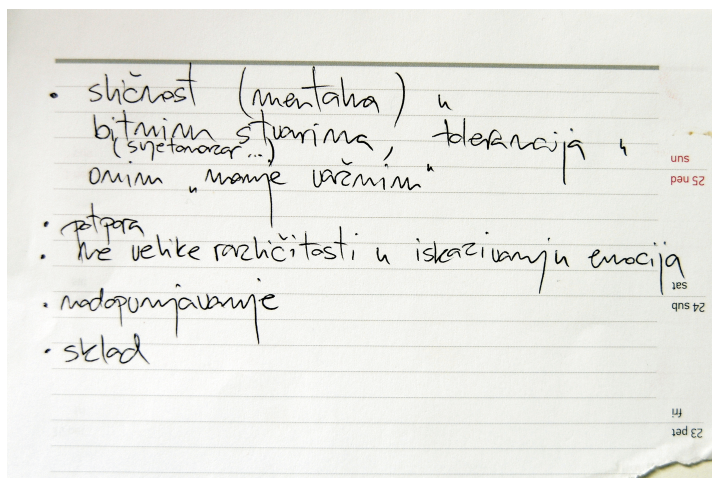 • sličnost (mentalna) u
bitnim stvarima, tolerancija u
(svjetonazor...)
onim „manje važnim"
• potpora
• ne velike različitosti u iskazivanju emocija
• nadopunjavanje
• sklad
sun
25 ned
sat
24 sub
fri
23 pet